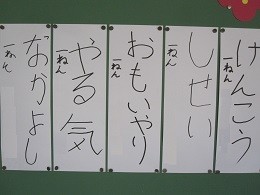 けんこう
一ねん
しせい
一ねん
おもいやり
一ねん
やる気
一ねん
なかよし
一ねん